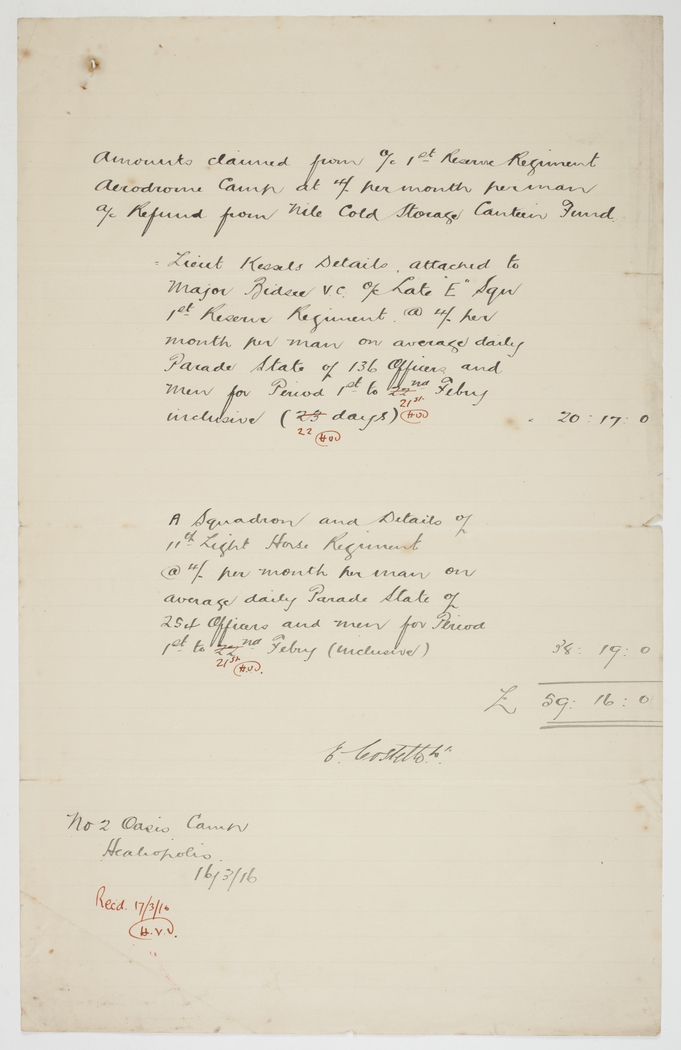 Amounts claimed from a/c 1st Reserve Regiment
Aerodrome Camp at 4/- per month per man
a/c Refund from Nile Cold Storage Canteen Fund
Lieut Kessels Details, attached to
Major V.C. o/c Late "E" Sqn
1st Reserve Regiment. @ 4/- per
month per man on average daily
Parade State of 136 Officers and
men for Period 1st to 22nd Febry
21st H.V.
inclusive (23 days) 20 : 17 : 0
22 H.V.
A Squadron and Details of
11th Light Horse Regiment
@ 4/- per month per man on
average daily Parade State of
254 Officers and men for Period
1st to 22nd Febry (inclusive) 38 : 19 : 0
21st H.V.
£ 59 : 16 : 0
No 2 Oasis Camp
Healiopolis
16/3/16
Recd. 17/3/16
H.V.V.